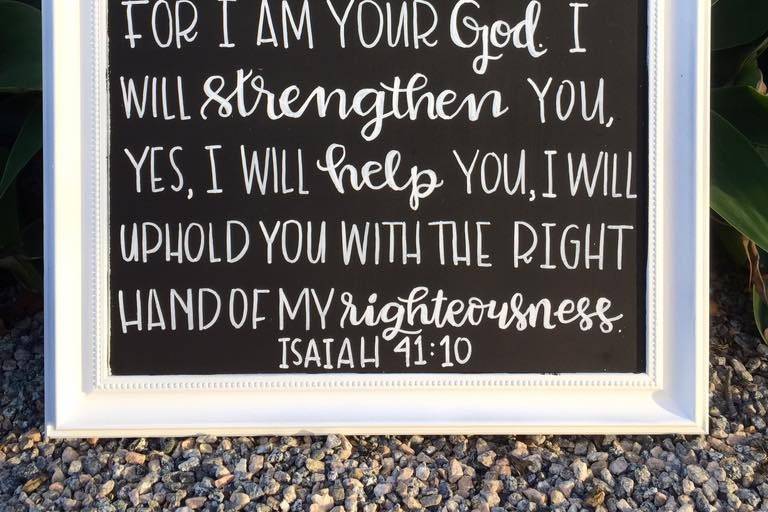 FOR I AM YOUR God. I
WILL strengthen YOU,
YES, I WILL help YOU, I WILL
UPHOLD YOU WITH THE RIGHT
HAND OF MY righteousness.
ISAIAH 41:10